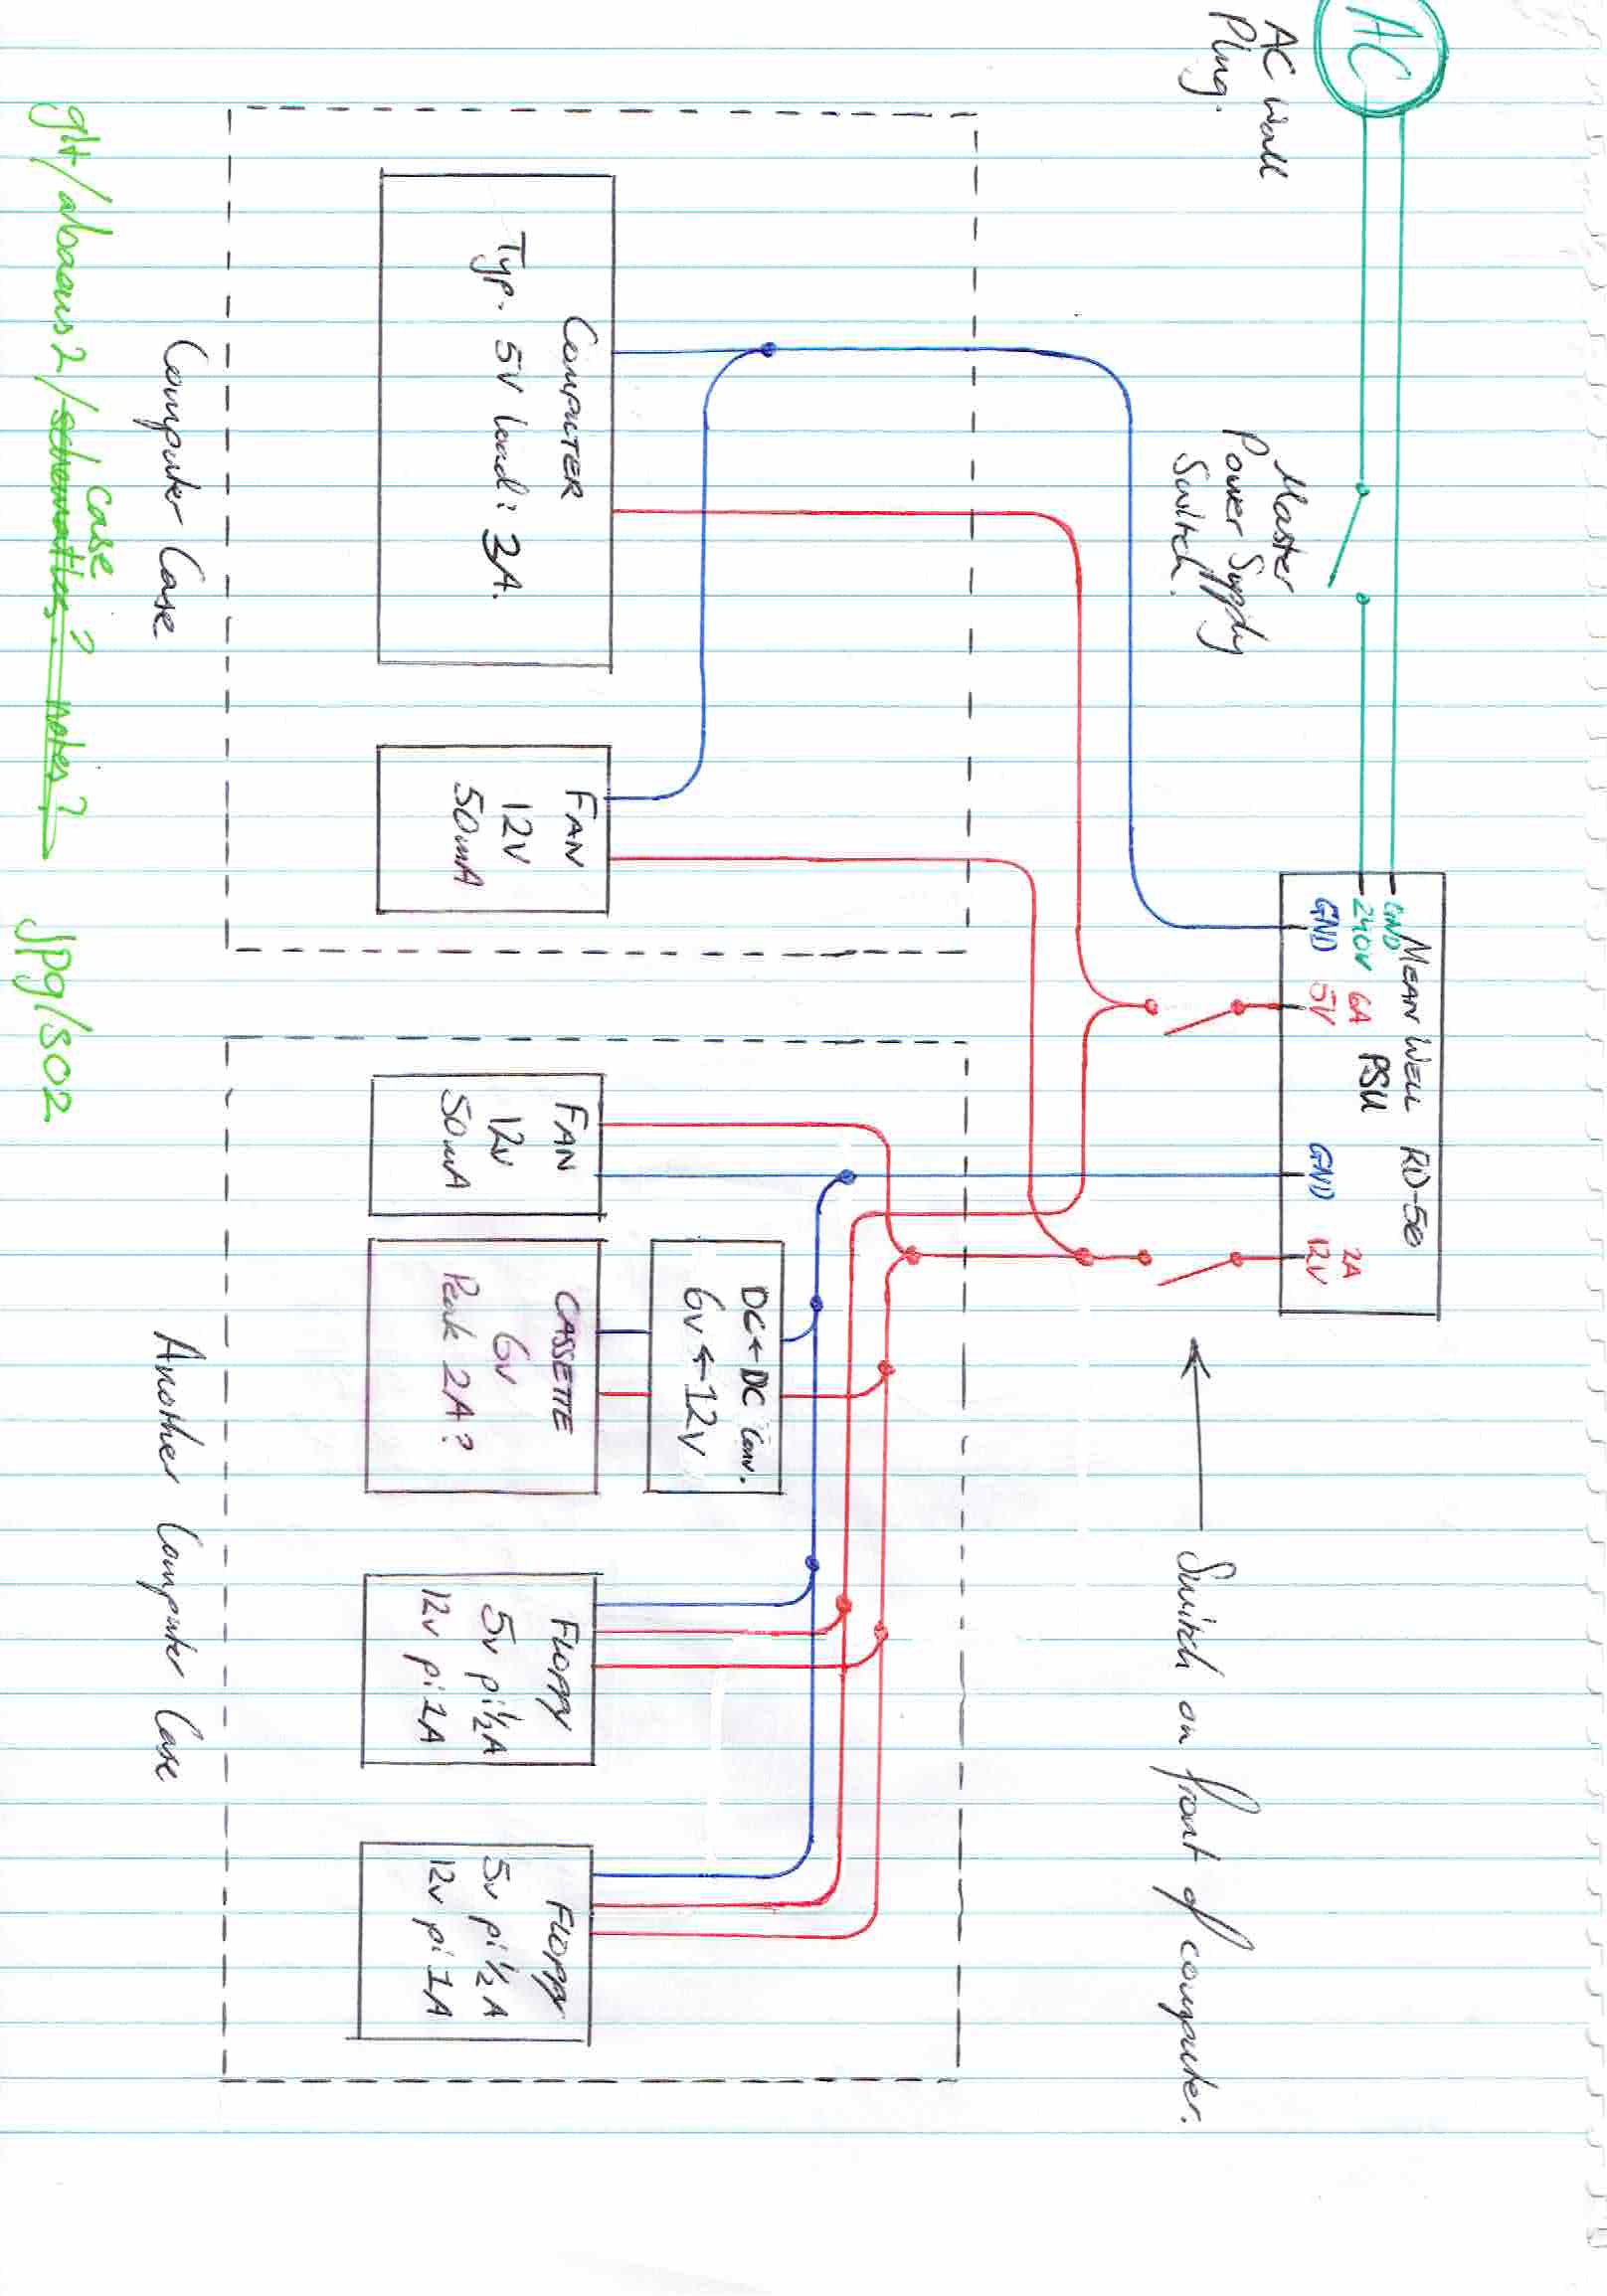 AC
AC Wall
Plug.
Master
Power Supply
Switch.
MEAN WELL RD-50
PSU
GND
240V
6A
5V
GND
GND
2A
12V
Switch on front of computer.
DC←DC Conv.
6v←12v
COMPUTER
Typ. 5V load: 3A.
FAN
12V
50mA
FAN
12v
50mA
CASSETTE
6v
Peak 2A?
FLOPPY
5v pi ½A
12v pi 1A
FLOPPY
5v pi ½A
12v pi 1A
Computer Case
Another Computer Case
case
git/abacus2/schematics? notes?
jpg/s02